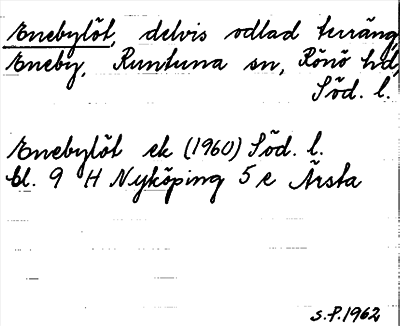 Enebylöt, delvis odlad terräng,
Eneby, Runtuna sn, Rönö hd,
Söd. l.
Enebylöt ek (1960) Söd. l.
Bl. 9 H Nyköping 5 e Årsta
S.P. 1962